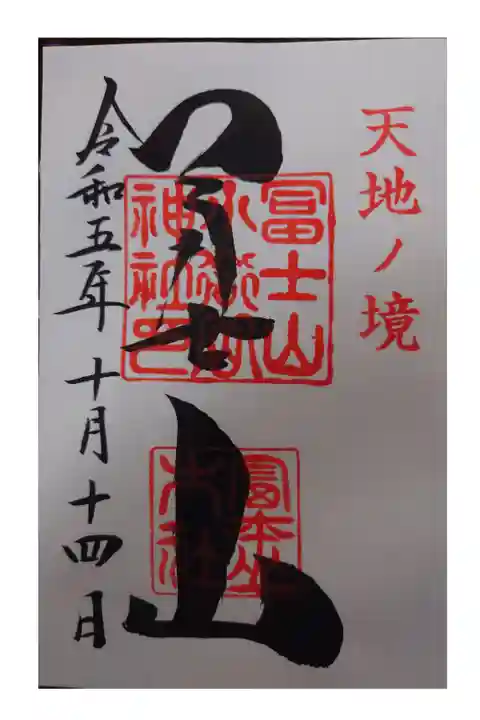 天地ノ境
冨士山
冨士山
小御嶽
神社印
令和五年十月十四日